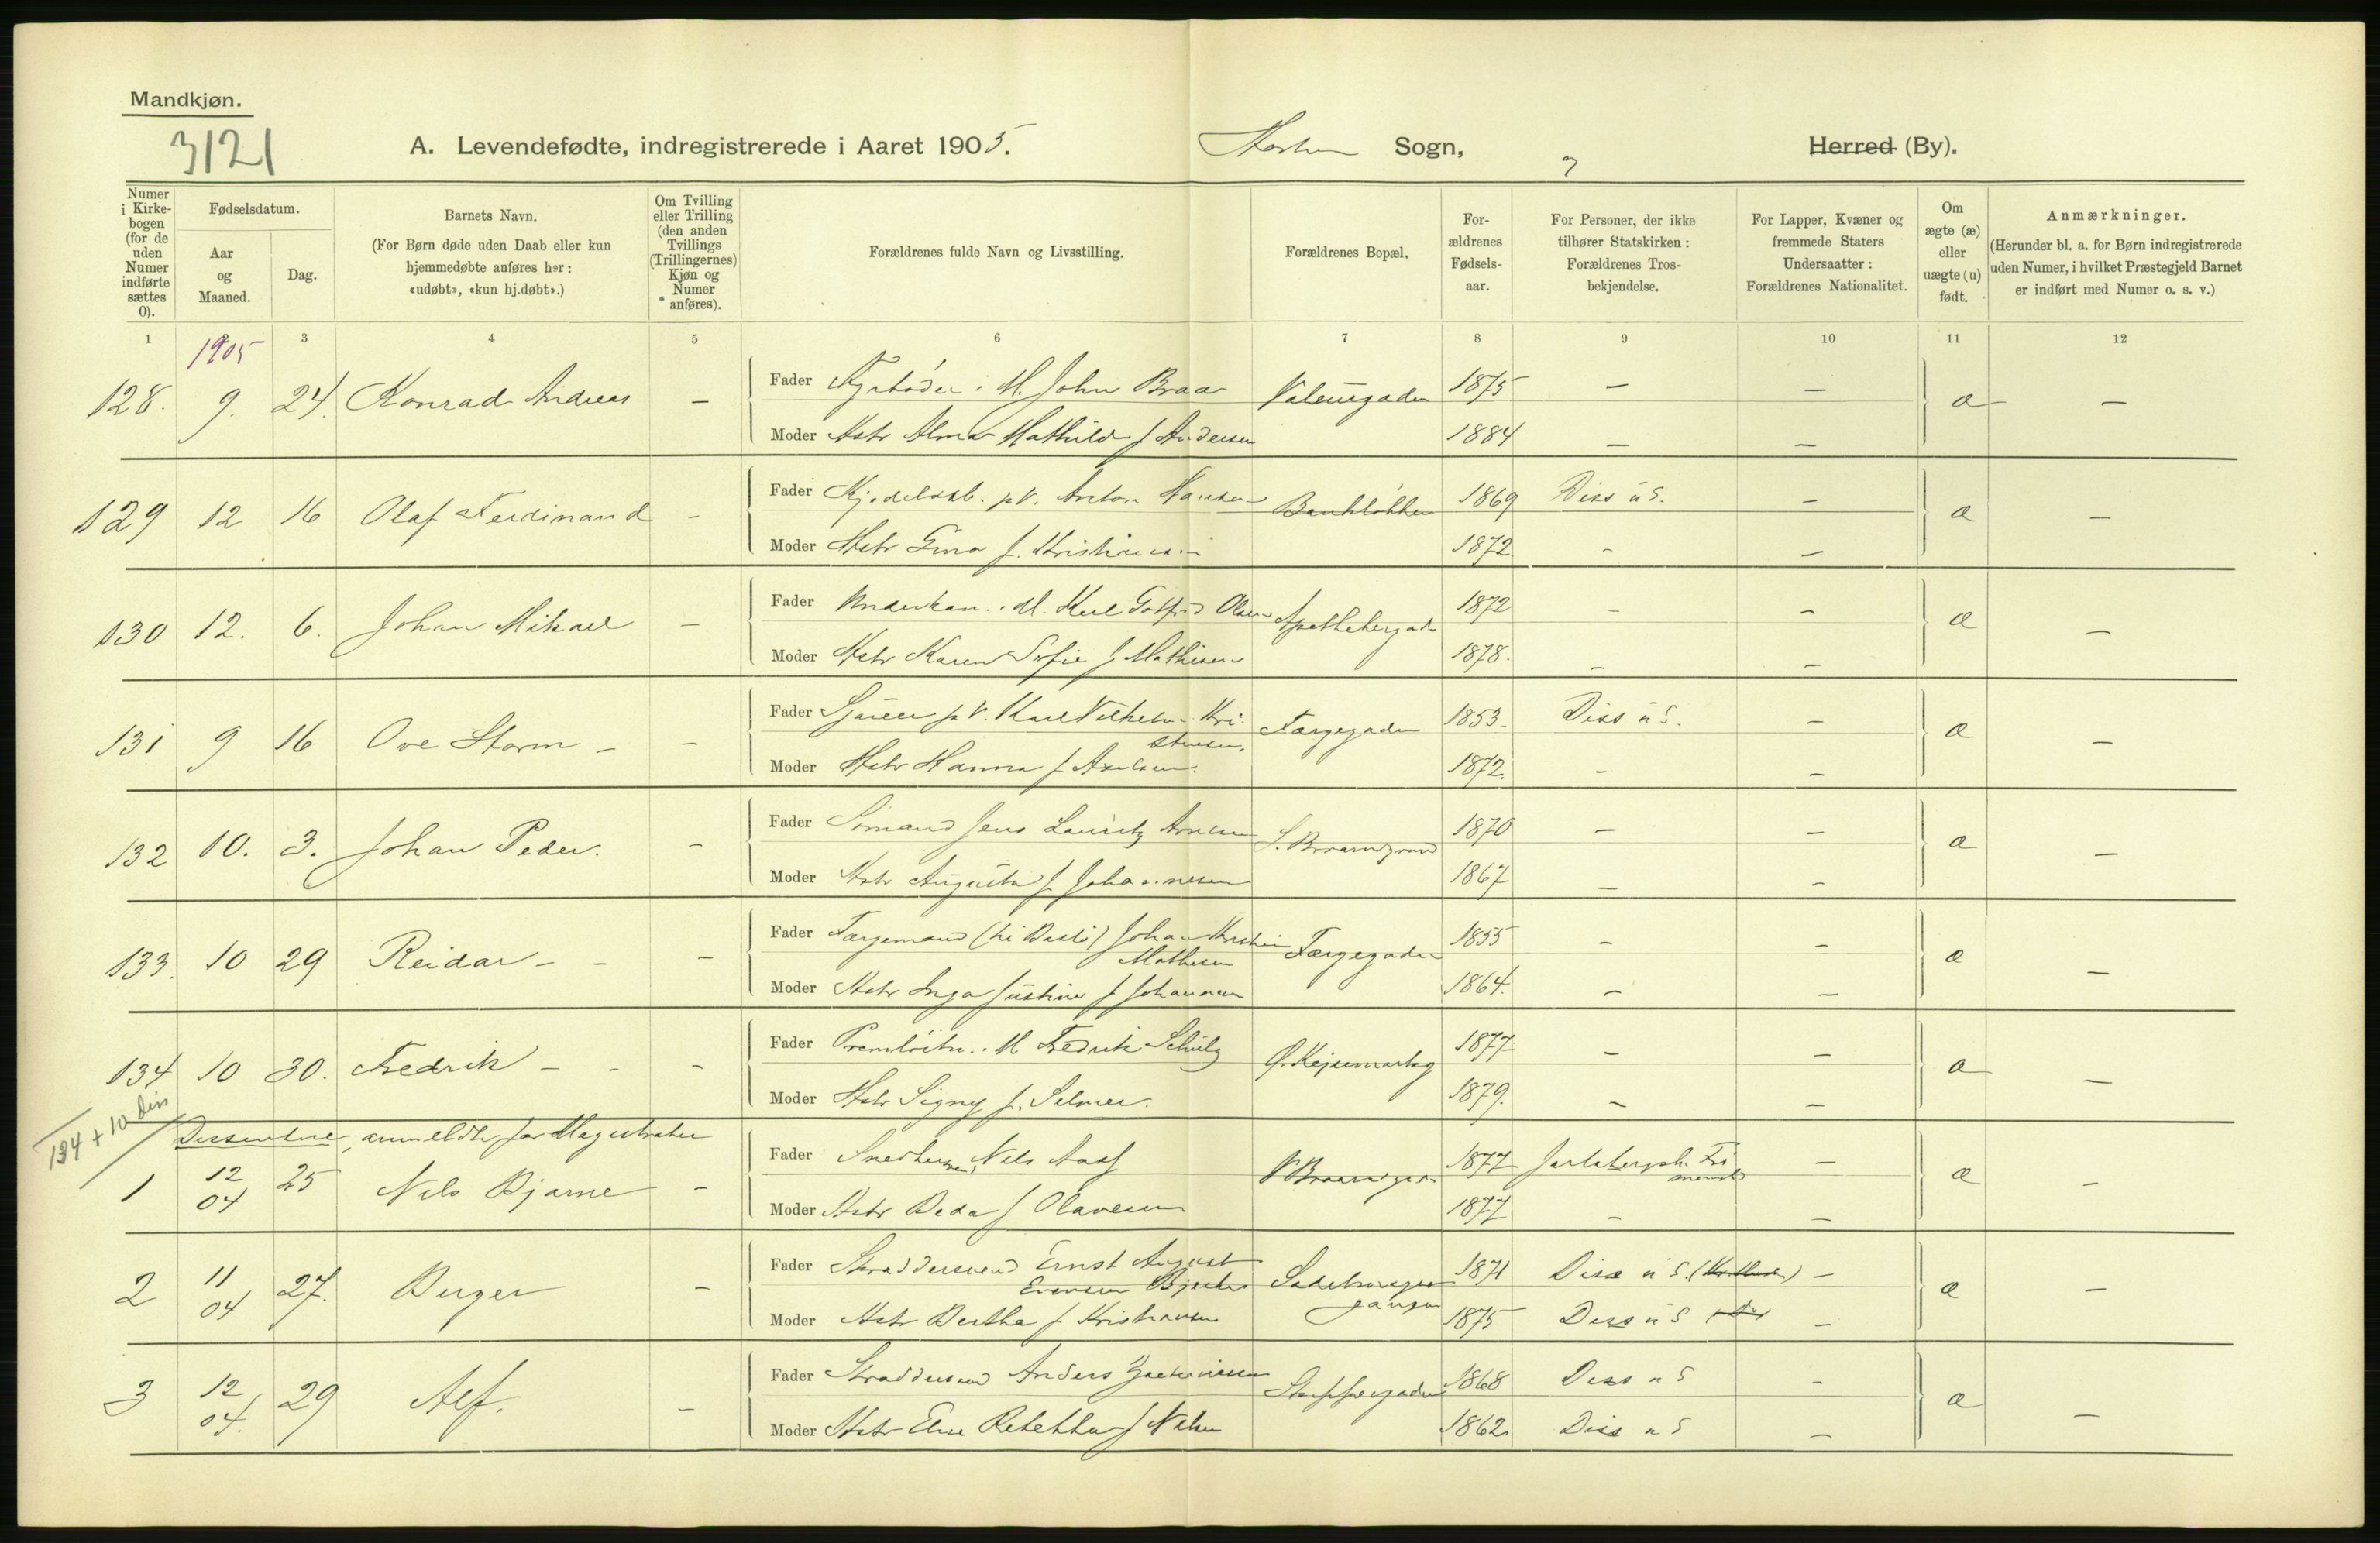 Mandkjøn.
3121
A. Levendefødte, indregistrerede i Aaret 1905. Horten Sogn, Herred (By).
Numer i Kirkebogen (for de uden Numer indførte sættes 0).
Fødselsdatum.
Aar og Maaned.
Dag.
Barnets Navn.
(For Børn døde uden Daab eller kun hjemmedøbte anføres her: «udøbt», «kun hj.døbt».)
Om Tvilling eller Trilling (den anden Tvillings (Trillingernes) Kjøn og Numer anføres).
Forældrenes fulde Navn og Livsstilling.
Forældrenes Bopæl.
Forældrenes Fødselsaar.
For Personer, der ikke tilhører Statskirken: Forældrenes Trosbekjendelse.
For Lapper, Kvæner og fremmede Staters Undersaatter: Forældrenes Nationalitet.
Om ægte (æ) eller uægte (u) født.
Anmærkninger.
(Herunder bl. a. for Børn indregistrerede uden Numer, i hvilket Præstegjeld Barnet er indført med Numer o. s. v.)
1 2 3 4 5 6 7 8 9 10 11 12
1905
128. 9. 24. Konrad Andreas - Fader Fyrbøder i M. John Braa 1875 - - æ -
Moder Hstr Alma Mathilde f Andersen 1884 - -
129 12 16 Olaf Ferdinand - Fader p V. Anton Hansen Bankløkken 1869 Diss u S. - æ -
Moder Hstr f. Kristiansen 1872 - -
130 12. 6. Johan Mikael - Fader Underkan. i M. Karl Gotfred Olsen Apothekergaden 1872 - - æ -
Moder Hstr Karen Sofie f Mathisen 1878. - -
131 9 16 Ove Storm - - Fader p V. Karl Vilhelm Kri- Færgegaden 1853 Diss u S. - æ -
stensen,
Moder Hstr Hanna f Axelsen. 1872. - -
132 10. 3. Johan Peder. - Fader Sømand Jens Lauritz Arnesen S. Braarudgrund 1870 - - æ -
Moder Hstr Augusta f Johannesen 1867 - -
133. 10 29 Reidar - - - Fader Færgemand (til Bastø) Johan Kristian Færgegaden 1855 - - æ -
Mathisen
Moder Hstr Inga Justine f Johannesen 1864. - -
134 10 30. Fredrik - - - Fader Premløitn. i M Fredrik Schulz Ø. Kejsemarkg 1877 - - æ -
Moder Hstr Signy f. Selmer. 1879. - -
134 + 10 diss
Dissentere, anmeldte for Magistraten
1 12 04 25 Nils Bjarne - Fader Snedkersvend, Nils Aass 1877 Jarlsbergsk. Fri- - æ -
menigh
Moder Hstr f Olavesen 1877 - -
2 11 04 27. Birger - Fader Skræddersvend Ernst August 1871 Diss u S. - æ -
Evensen
Moder Hstr Bertha f Kristiansen 1875 Diss u S -
3 12 04. 29 Alf. - Fader Skræddersvend Anders Zachariassen 1868 Diss u S - æ -
Moder Hstr Else Rebekka f Nilsen 1862 Diss u S -